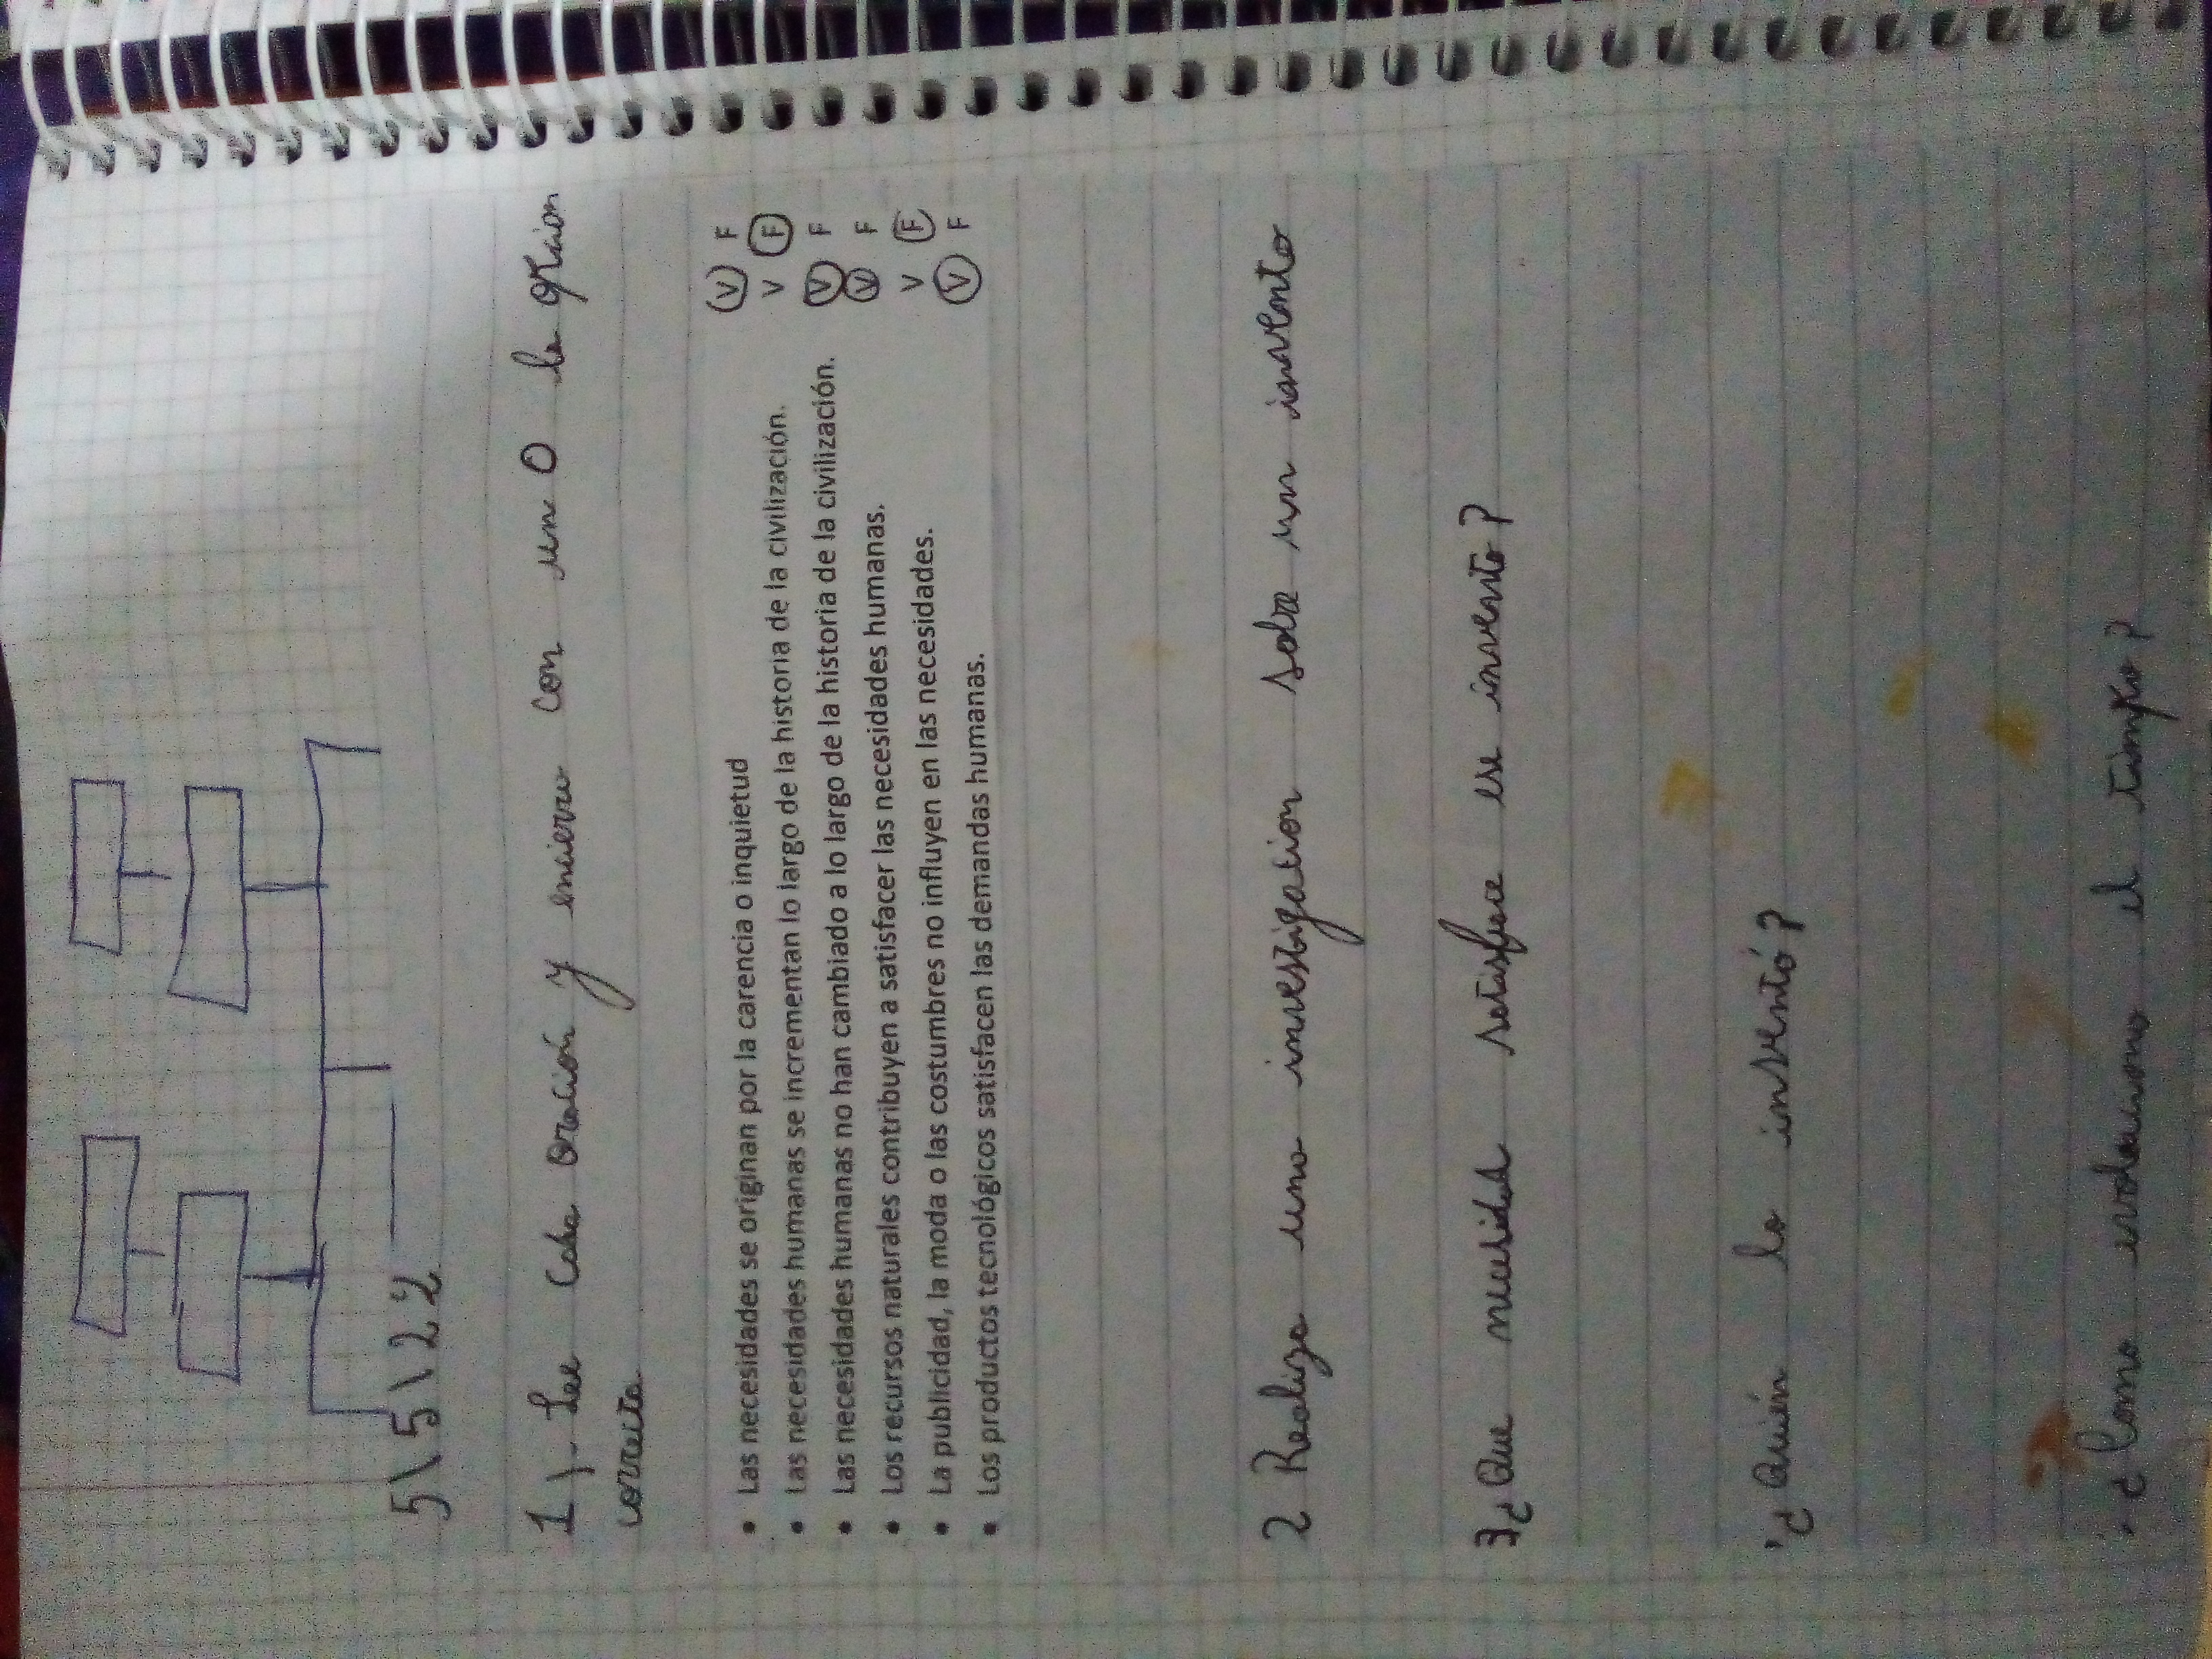 5\5\22
1)- Lee Cada oración y encierra con un O la opcion
correcta
• Las necesidades se originan por la carencia o inquietud V F
• Las necesidades humanas se incrementan lo largo de la historia de la civilización. V F
• Las necesidades humanas no han cambiado a lo largo de la historia de la civilización. V F
• Los recursos naturales contribuyen a satisfacer las necesidades humanas. V F
• La publicidad, la moda o las costumbres no influyen en las necesidades. V F
• Los productos tecnológicos satisfacen las demandas humanas. V F
2 Realiza una investigacion sobre un invento
¿Que necesidad satisface ese invento?
¿Quién lo inventó?
¿Como evoluciono el tiempo?